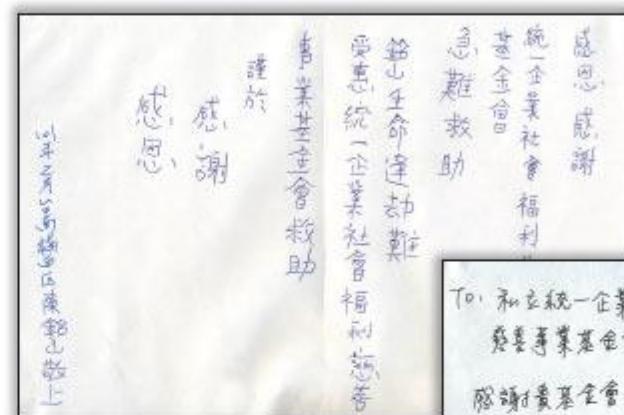 感恩感謝
統一企業社會福利
基金會
急難救助
銘山生命逢劫難
受惠統一企業社會福利慈善
事業基金會救助
謹於
感謝
感恩
陳銘山敬上
TO: 私立統一企業
慈善事業基金
感謝貴基金會